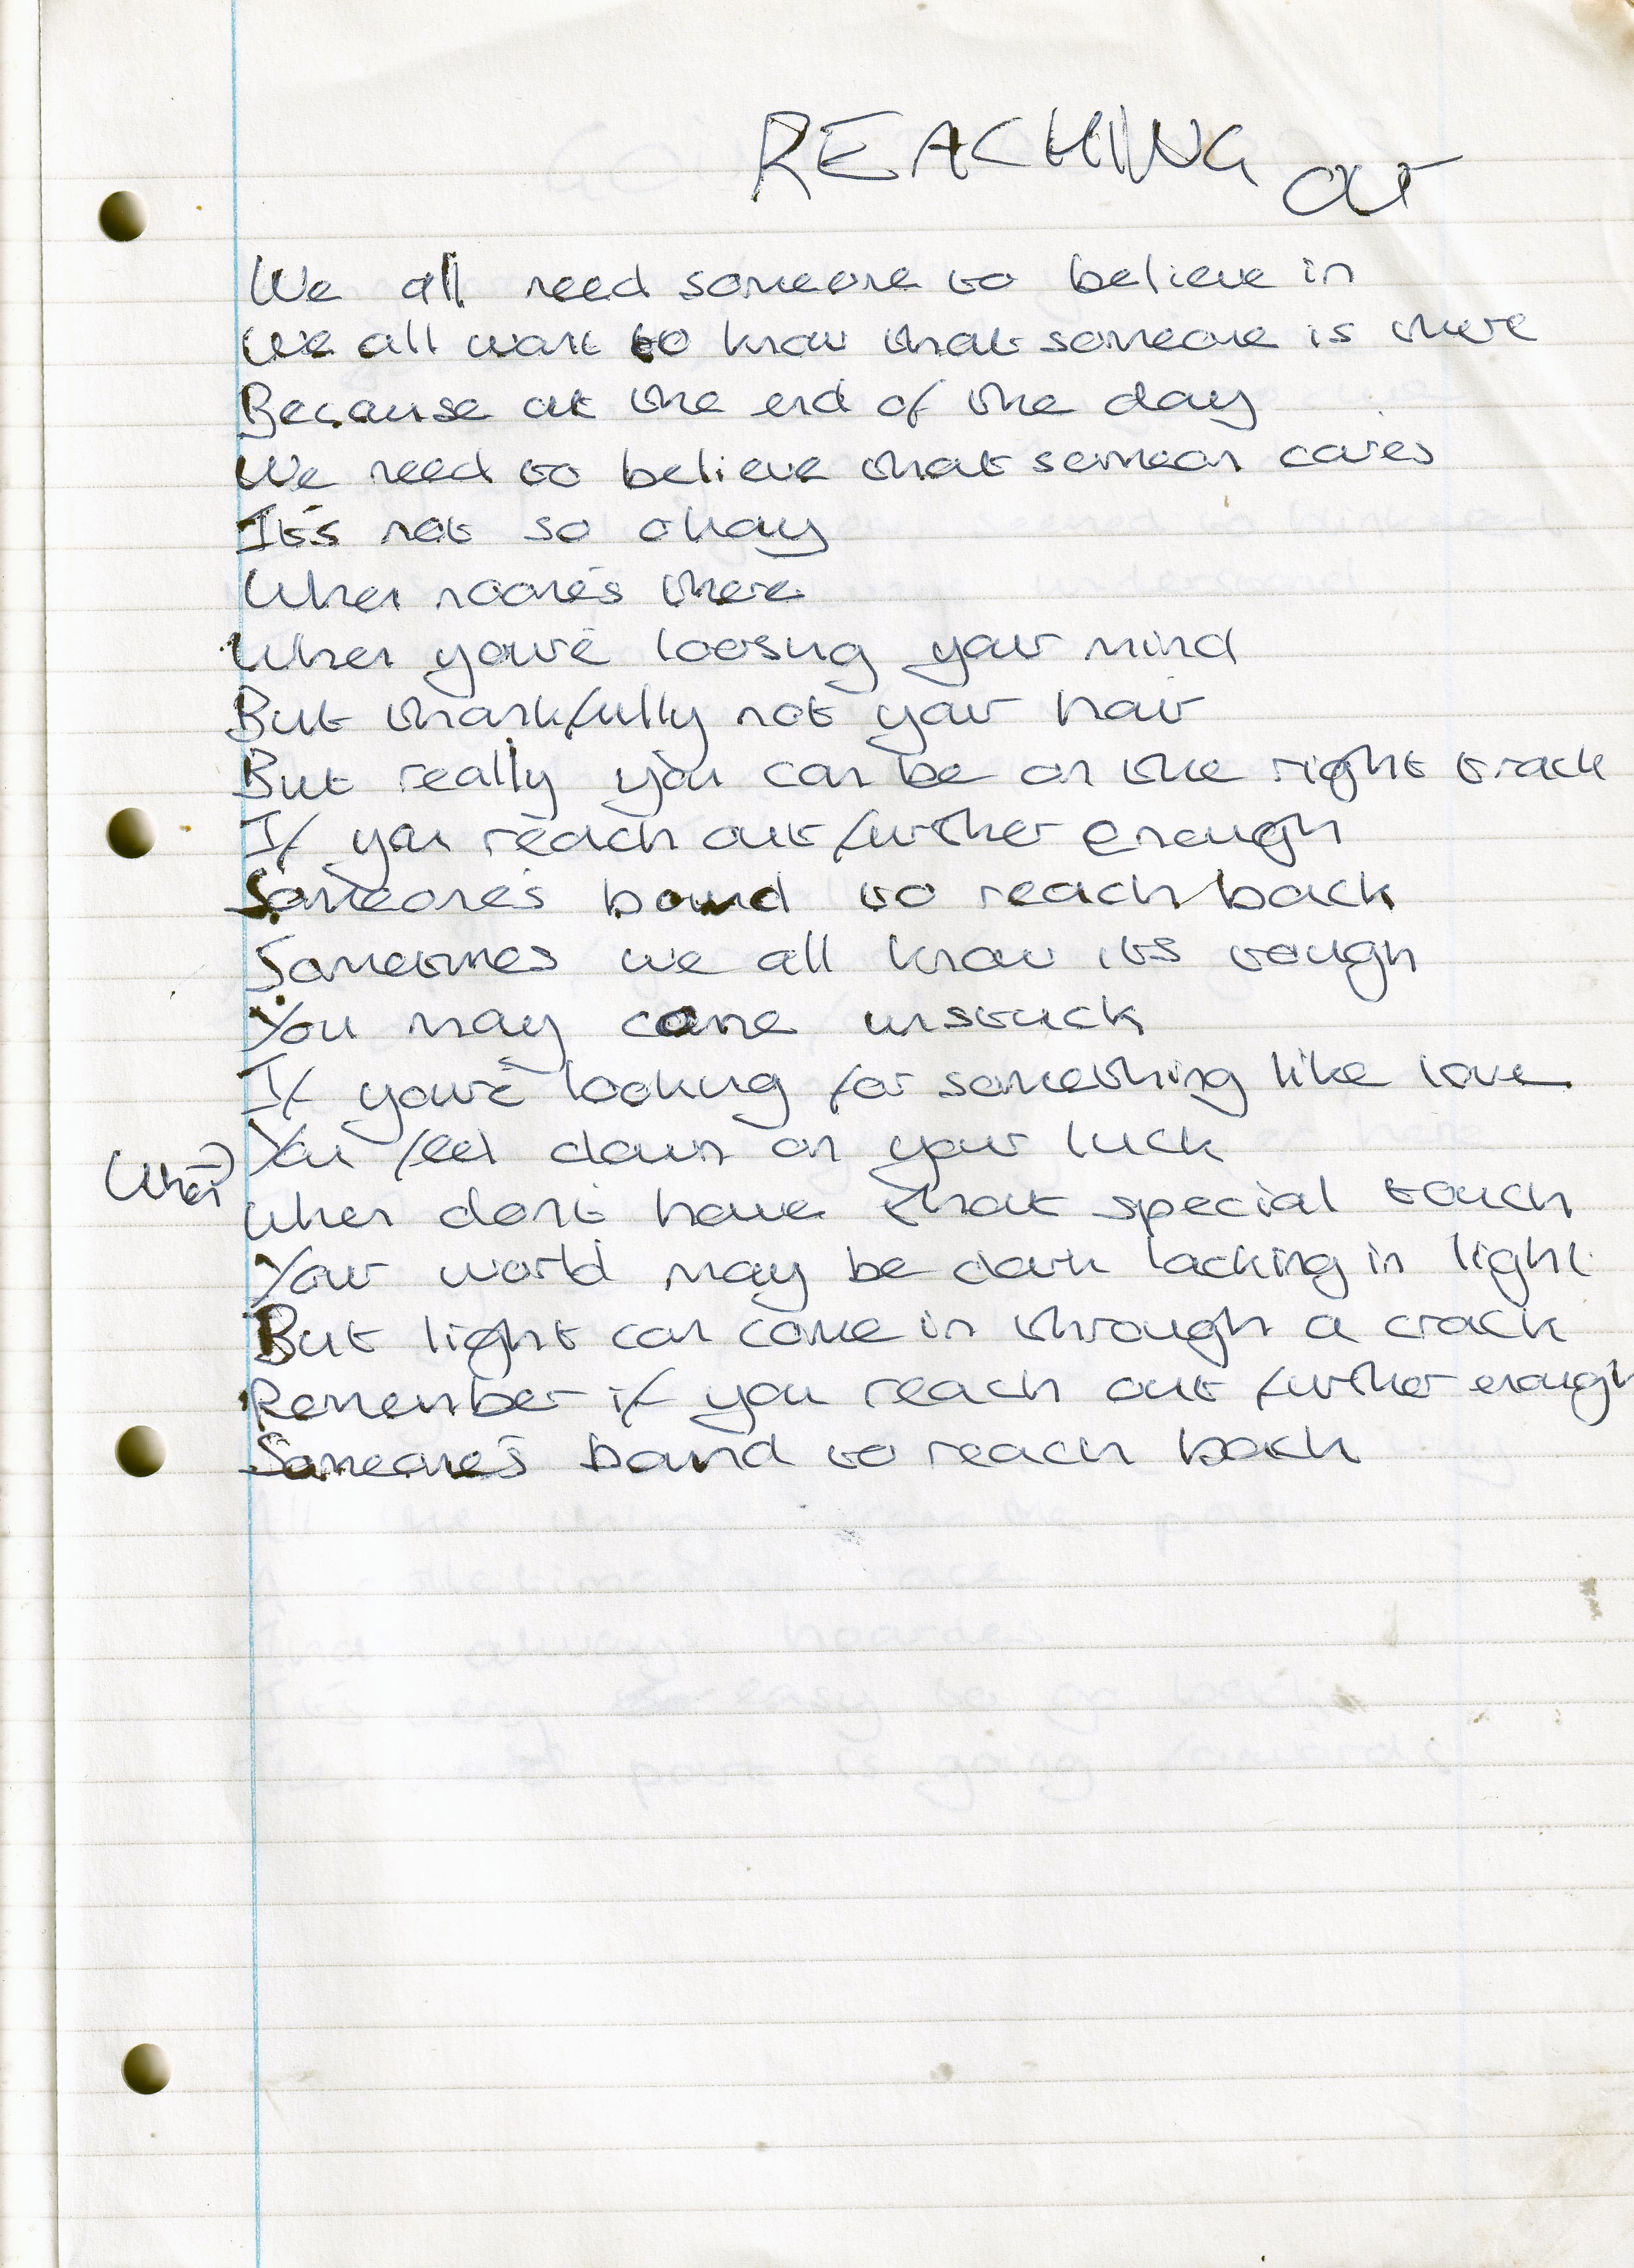 REACHING out
We all need someone to believe in
We all want to know that someone is there
Because at the end of the day
We need to believe that someon cares
It's not so okay
When noone's there
When you're loosng your mind
But thankfully not your hair
But really you can be on the right track
If you reach out further enough
Someone's bound to reach back
Sometimes we all know its tough
You may come unstuck
If you're lookng for something like love
(When) You feel down on your luck
When don't have that special touch
Your world may be dark lacking in light
But light can come in through a crack
Remember if you reach out further enough
Someone's bound to reach back